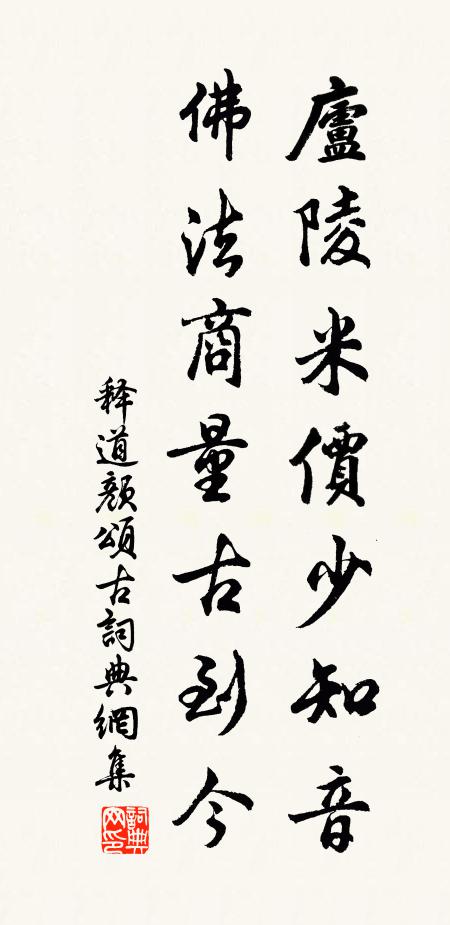 廬陵米價少知音
佛法商量古到今
释道顏頌古詞典網集
詞典网印